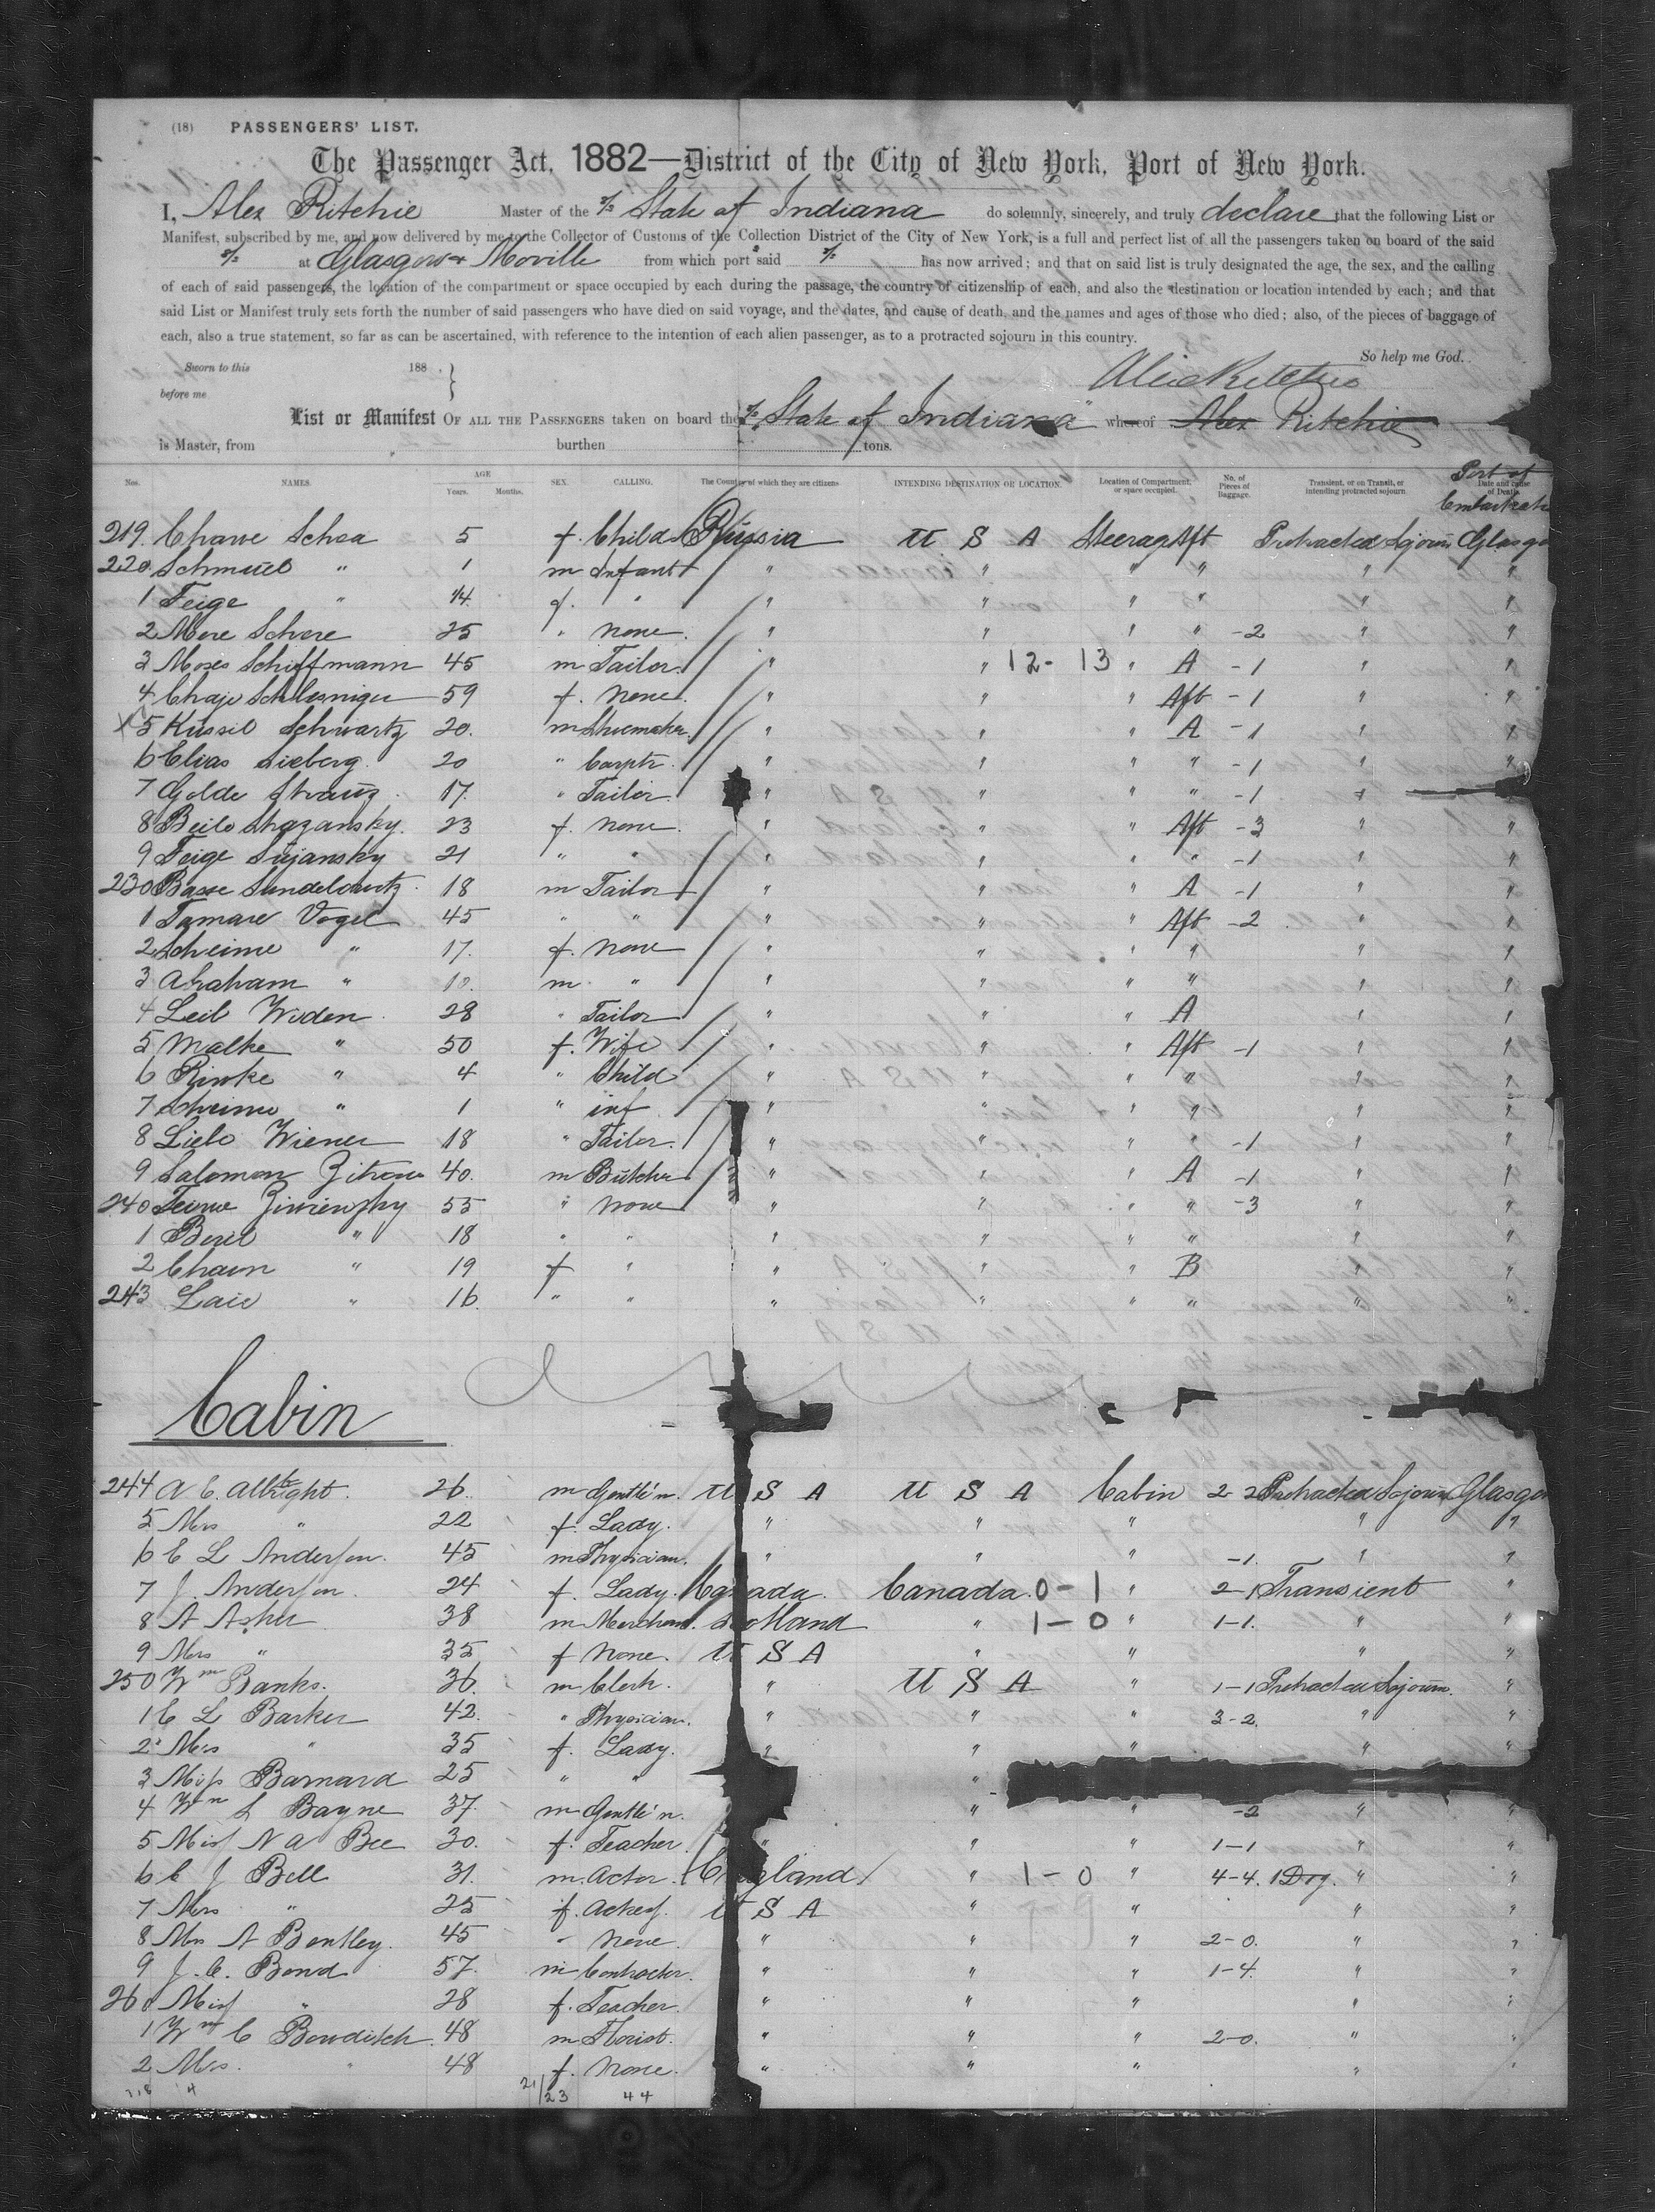 (18) PASSENGERS' LIST.
The Passenger Act, 1882—District of the City of New York, Port of New York.
I, Alex Ritchie Master of the S/S State of Indiana do solemnly, sincerely, and truly declare that the following List or
Manifest, subscribed by me, and now delivered by me to the Collector of Customs of the Collection District of the City of New York, is a full and perfect list of all the passengers taken on board of the said
S/S at Glasgow & Moville from which port said S/S has now arrived; and that on said list is truly designated the age, the sex, and the calling
of each of said passengers, the location of the compartment or space occupied by each during the passage, the country of citizenship of each, and also the destination or location intended by each; and that
said List or Manifest truly sets forth the number of said passengers who have died on said voyage, and the dates, and cause of death, and the names and ages of those who died; also, of the pieces of baggage of
each, also a true statement, so far as can be ascertained, with reference to the intention of each alien passenger, as to a protracted sojourn in this country.
So help me God.
Sworn to this 188 . }
before me
Alex Ritchie
List or Manifest OF ALL THE PASSENGERS taken on board the S/S State of Indiana" whereof Alex Ritchie
is Master, from burthen tons.
Nos. NAMES. AGE Years. Months. SEX. CALLING. The Country of which they are citizens INTENDING DESTINATION OR LOCATION. Location of Compartment, or space occupied. No. of Pieces of Baggage. Transient, or on Transit, or intending protracted sojourn Date and cause of Death. Port of Embarkatn
219. Chawe Schea 5 f. Child Russia U S A Steerage Aft Protracted Sojourn Glasgo
220 Schmuel " 1 m Infant " " " " " "
1 Feige " 14 f. " " " " " " "
2 Mere Schere 25 " none " " " " -2 " "
3 Moses Schiffmann 45 m Tailor " " 12- 13 " A -1 " "
4 Chaje Schlesniger 59 f. none " " " Aft -1 " "
X 5 Kussil Schwartz 20. m Shoemaker " " " A -1 " "
6 Elias Sieberg. 20 " Carptr. " " " " -1 " "
7 Golde Strauz. 17. " Tailor " " " " -1 " "
8 Beile Shazansky. 23 f. none. " " " Aft -3 " "
9 Feige Sujansky 21 " " " " " " -1 " "
230 Basse Sundelowitz 18 m Tailor " " " A -1 " "
1 Tamare Vogel 45 " " " " " Aft -2 " "
2 Scheime " 17. f. none " " " " " "
3 Abraham " 10. m. " " " " " " "
4 Leib Widen 28 " Tailor " " " A " "
5 Malke " 50 f. Wife " " " Aft -1 " "
6 Rinke " 4 " Child " " " " " "
7 Scheime " 1 " inf " " " " " "
8 Liebe Wiener 18 " Tailor. " " " " -1 " "
9 Salomon Zitrone 40. m Butcher " " " A -1 " "
240 55 " none " " " " -3 " "
1 Beril " 18 " " " " " " " "
2 Chawn " 19 f " " " " B " "
243 Laie " 16. " " " " " " " "
Cabin
244 A C. Allbright. 26. m Gentle'n. U S A U S A Cabin 2-2 Protracted Sojourn Glasgow
5 Mrs " 22 f. Lady. " " " " "
6 E L Anderson. 45 m Physician. " " " -1. " "
7 J. Anderson. 24 f. Lady. Canada. Canada. 0-1 " 2-1 Transient "
8 A Asher 38 m Merchant. Scotland " 1-0 " 1-1. " "
9 Mrs " 35 f None. U S A " " " "
250 Wm Banks. 36. m Clerk. " U S A " 1-1 Protracted Sojourn. "
1 E L Barker 42. " Physician. " " " 3-2. " "
2 Mrs " 35 f. Lady. " " " " "
3 Miss Barnard 25 " " "
4 Wm L Bayne 37. m Gentle'n. " " -2 " "
5 Miss N A Bee 30. f. Teacher " " " 1-1 " "
6 C J Bell 31. m. Actor. England " 1-0 " 4-4. 1 Dog. " "
7 Mrs " 25 f. Actress. U S A " " " "
8 Mrs A Bentley. 45 " None. " " " 2-0. " "
9 J. C. Bond 57. m Contractor. " " " 1-4. " "
260 Miss " 28 f. Teacher. " " " " "
1 Wm C Bowditch. 48 m Florist. " " " 2-0. " "
2 Mrs. " 48 f. None. " " " " "
21/23 44